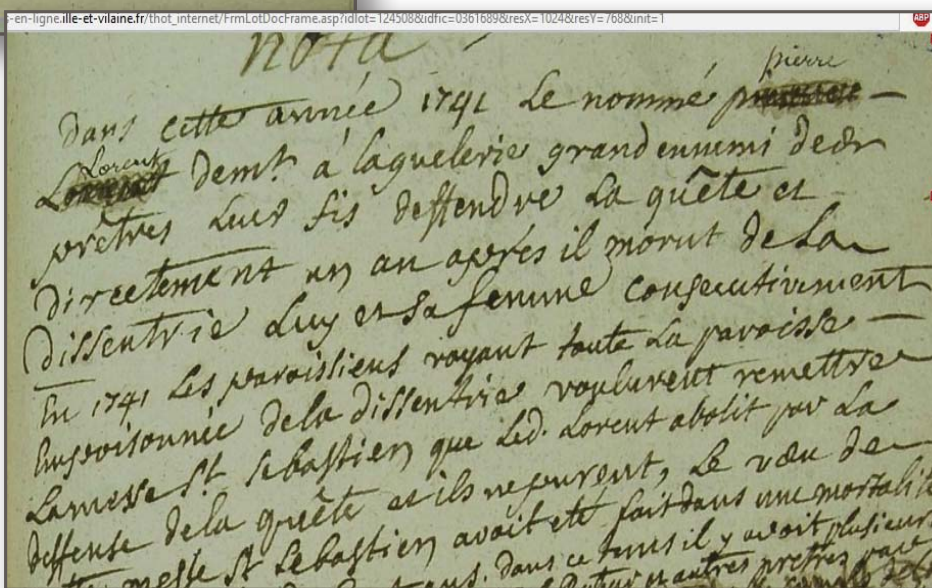 s-en-ligne.ille-et-vilaine.fr/thot_internet/FrmLotDocFrame.asp?idlot=124508&idfic=0361689&resX=1024&resY=768&init=1
ABP
nota
pierre
Dans cette année 1741 Le nommé
Lorent
demt. á laguelerie grand ennemi de
prêtres Leur fis deffendre La quête et
directement un an aprés il morut de La
dissentrie Luy et sa femme consecutivement
En 1741 Les paroissiens voyant toute La paroisse
Enpoisonnée dela dissentrie voulurent remettre
La messe St Sebastien que Led. Lorent abolit par La
deffense dela quête et ils ne peurent, Le vœu de
messe St Sebastien avoit eté fait dans une mortalité
dans ce tems il y avoit plusieurs
et autres prêtres